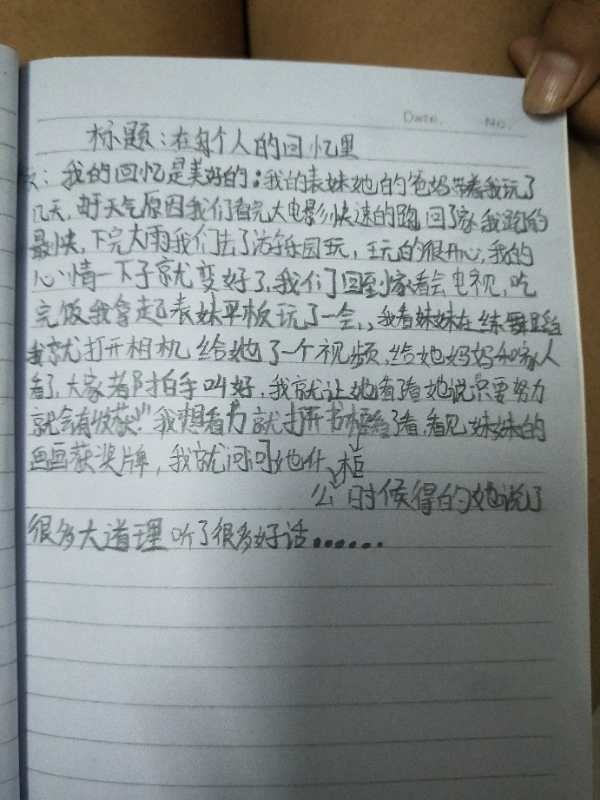 Date. No.
标题:在每个人的回忆里
文:我的回忆是美好的:我的表妹她的爸妈带着我玩了
几天,好天气原因我们看完大电影快速的跑回了家我跑的
最快,下完大雨我们去了游乐园玩,玩的很开心,我的
心情一下子就变好了,我们回到家看会电视,吃
完饭我拿起表妹平板玩了一会,我看妹妹在练舞蹈
我就打开相机给她了一个视频,给她妈妈和家人
看了,大家都拍手叫好,我就让她看了看她说只要努力
就会有收获!"我想看书就打开书柜看了看,看见妹妹的
画画获奖牌,我就问问她什
么时候得的她说了
很多大道理听了很多好话……